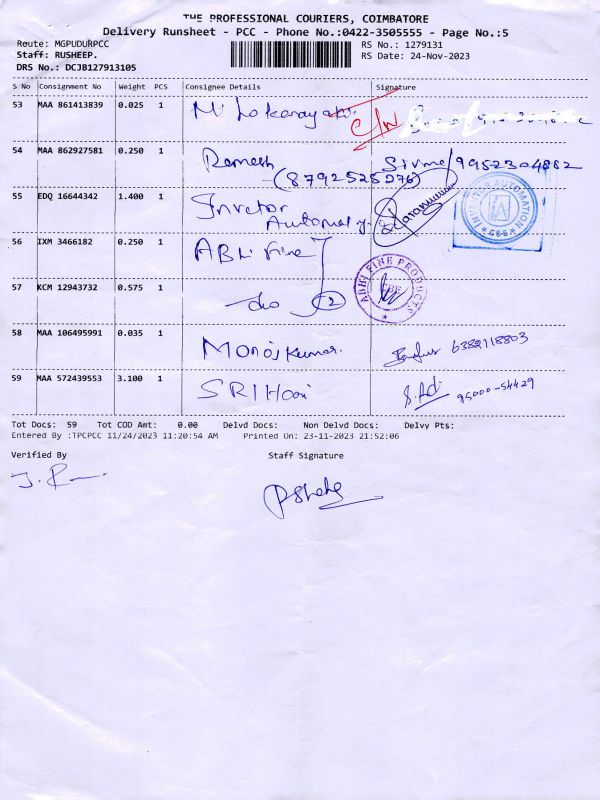 THE PROFESSIONAL COURIERS, COIMBATORE
Delivery Runsheet - PCC - Phone No.:0422-3505555 - Page No.:5
Route: MGPUDURPCC RS No.: 1279131
Staff: RUSHEEP. RS Date: 24-Nov-2023
DRS No.: DCJB127913105
S No Consignment No Weight PCS Consignee Details Signature
53 MAA 861413839 0.025 1
54 MAA 862927581 0.250 1 Ramesh 9952304882
(8792525276)
55 EDQ 16644342 1.400 1
56 IXM 3466182 0.250 1 ABHi Fine
ABHI FINE PRODUCTS
57 KCM 12943732 0.575 1 -do (2)
58 MAA 106495991 0.035 1 Manoj Kumar. 6382118803
59 MAA 572439553 3.100 1 SRI Hari 95000-54429
Tot Docs: 59 Tot COD Amt: 0.00 Delvd Docs: Non Delvd Docs: Delvy Pts:
Entered By :TPCPCC 11/24/2023 11:20:54 AM Printed On: 23-11-2023 21:52:06
Verified By Staff Signature